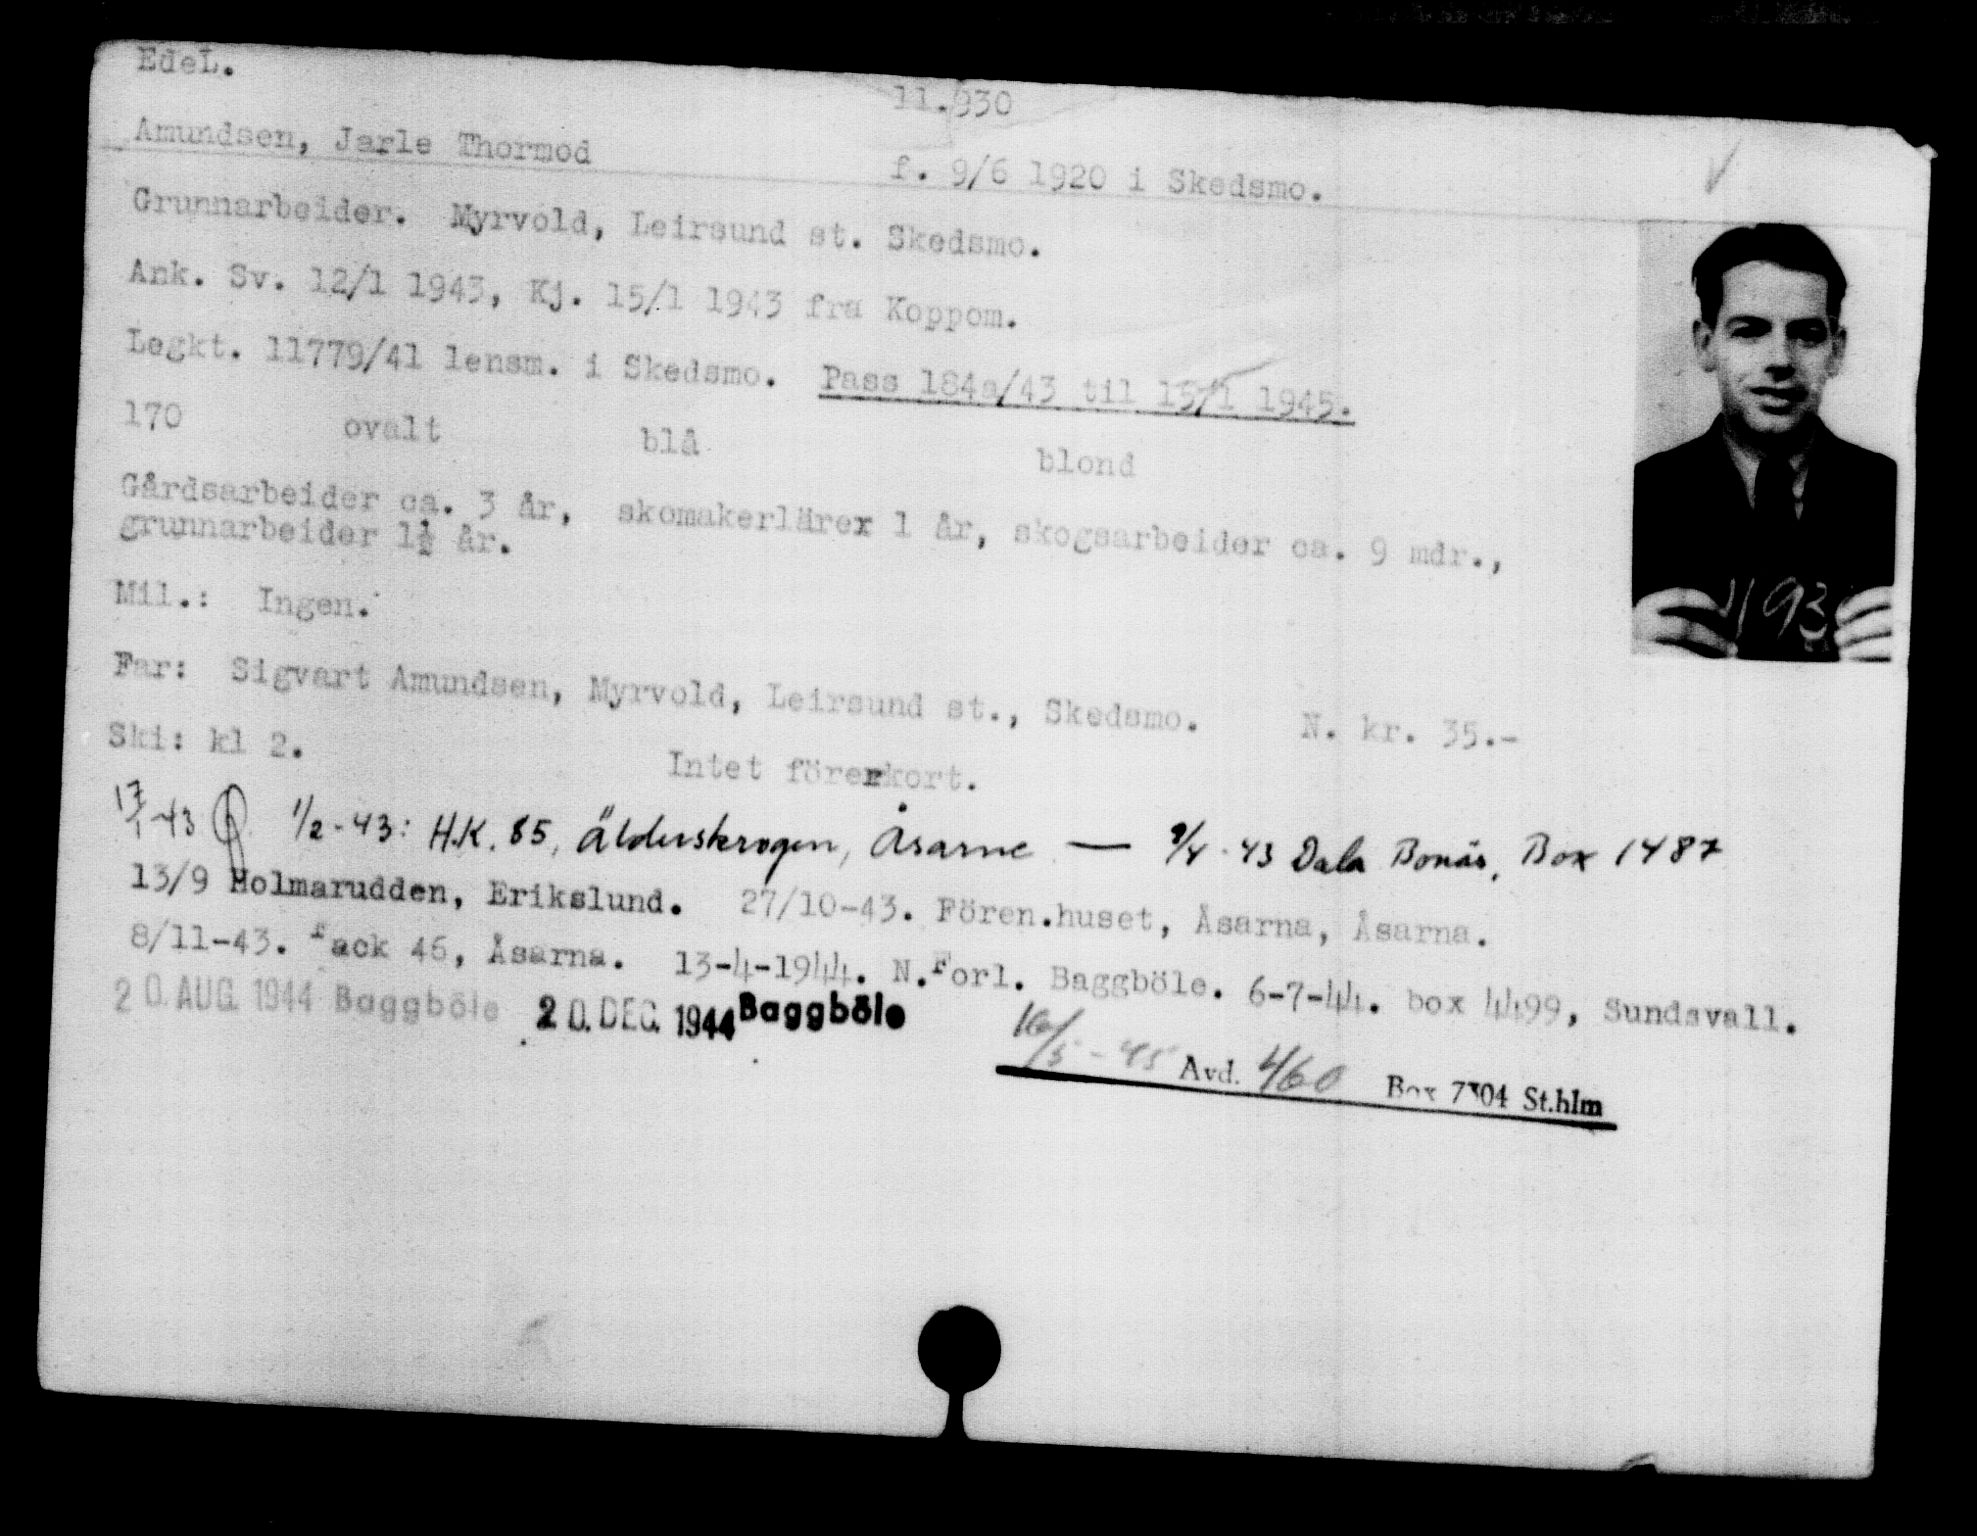 EdeL.
11.930
Amundsen, Jarle Thormod f. 9/6 1920 i Skedsmo.
Grunnarbeider. Myrvold, Leirsund st. Skedsmo.
Ank. Sv. 12/1 1943, Kj. 15/1 1943 fra Koppom.
Legkt. 11779/41 lensm. i Skedsmo. Pass 184a/43 til 15/1 1945.
170 ovalt blå blond
Gårdsarbeider ca. 3 år, skomakerlärer 1 år, skogsarbeider ca. 9 mdr.,
grunnarbeider 1½ år.
Mil.: Ingen.
Far: Sigvart Amundsen, Myrvold, Leirsund st., Skedsmo. N. kr. 35.-
Ski: kl 2. Intet förerkort.
17/1-43 1/2-43: H.K. 85, Älderskrogen, Åsarne — 9/4-43 Dala Bonäs, Box 1487
13/9 Holmarudden, Erikslund. 27/10-43. Fören.huset, Åsarna, Åsarna.
8/11-43. Fack 46, Åsarna. 13-4-1944. N.Forl. Baggböle. 6-7-44. box 4499, Sundsvall.
20. AUG. 1944 Baggböle 20. DEC. 1944 Baggböle
16/5-45 Avd. 460 Box 7304 St.hlm
1193